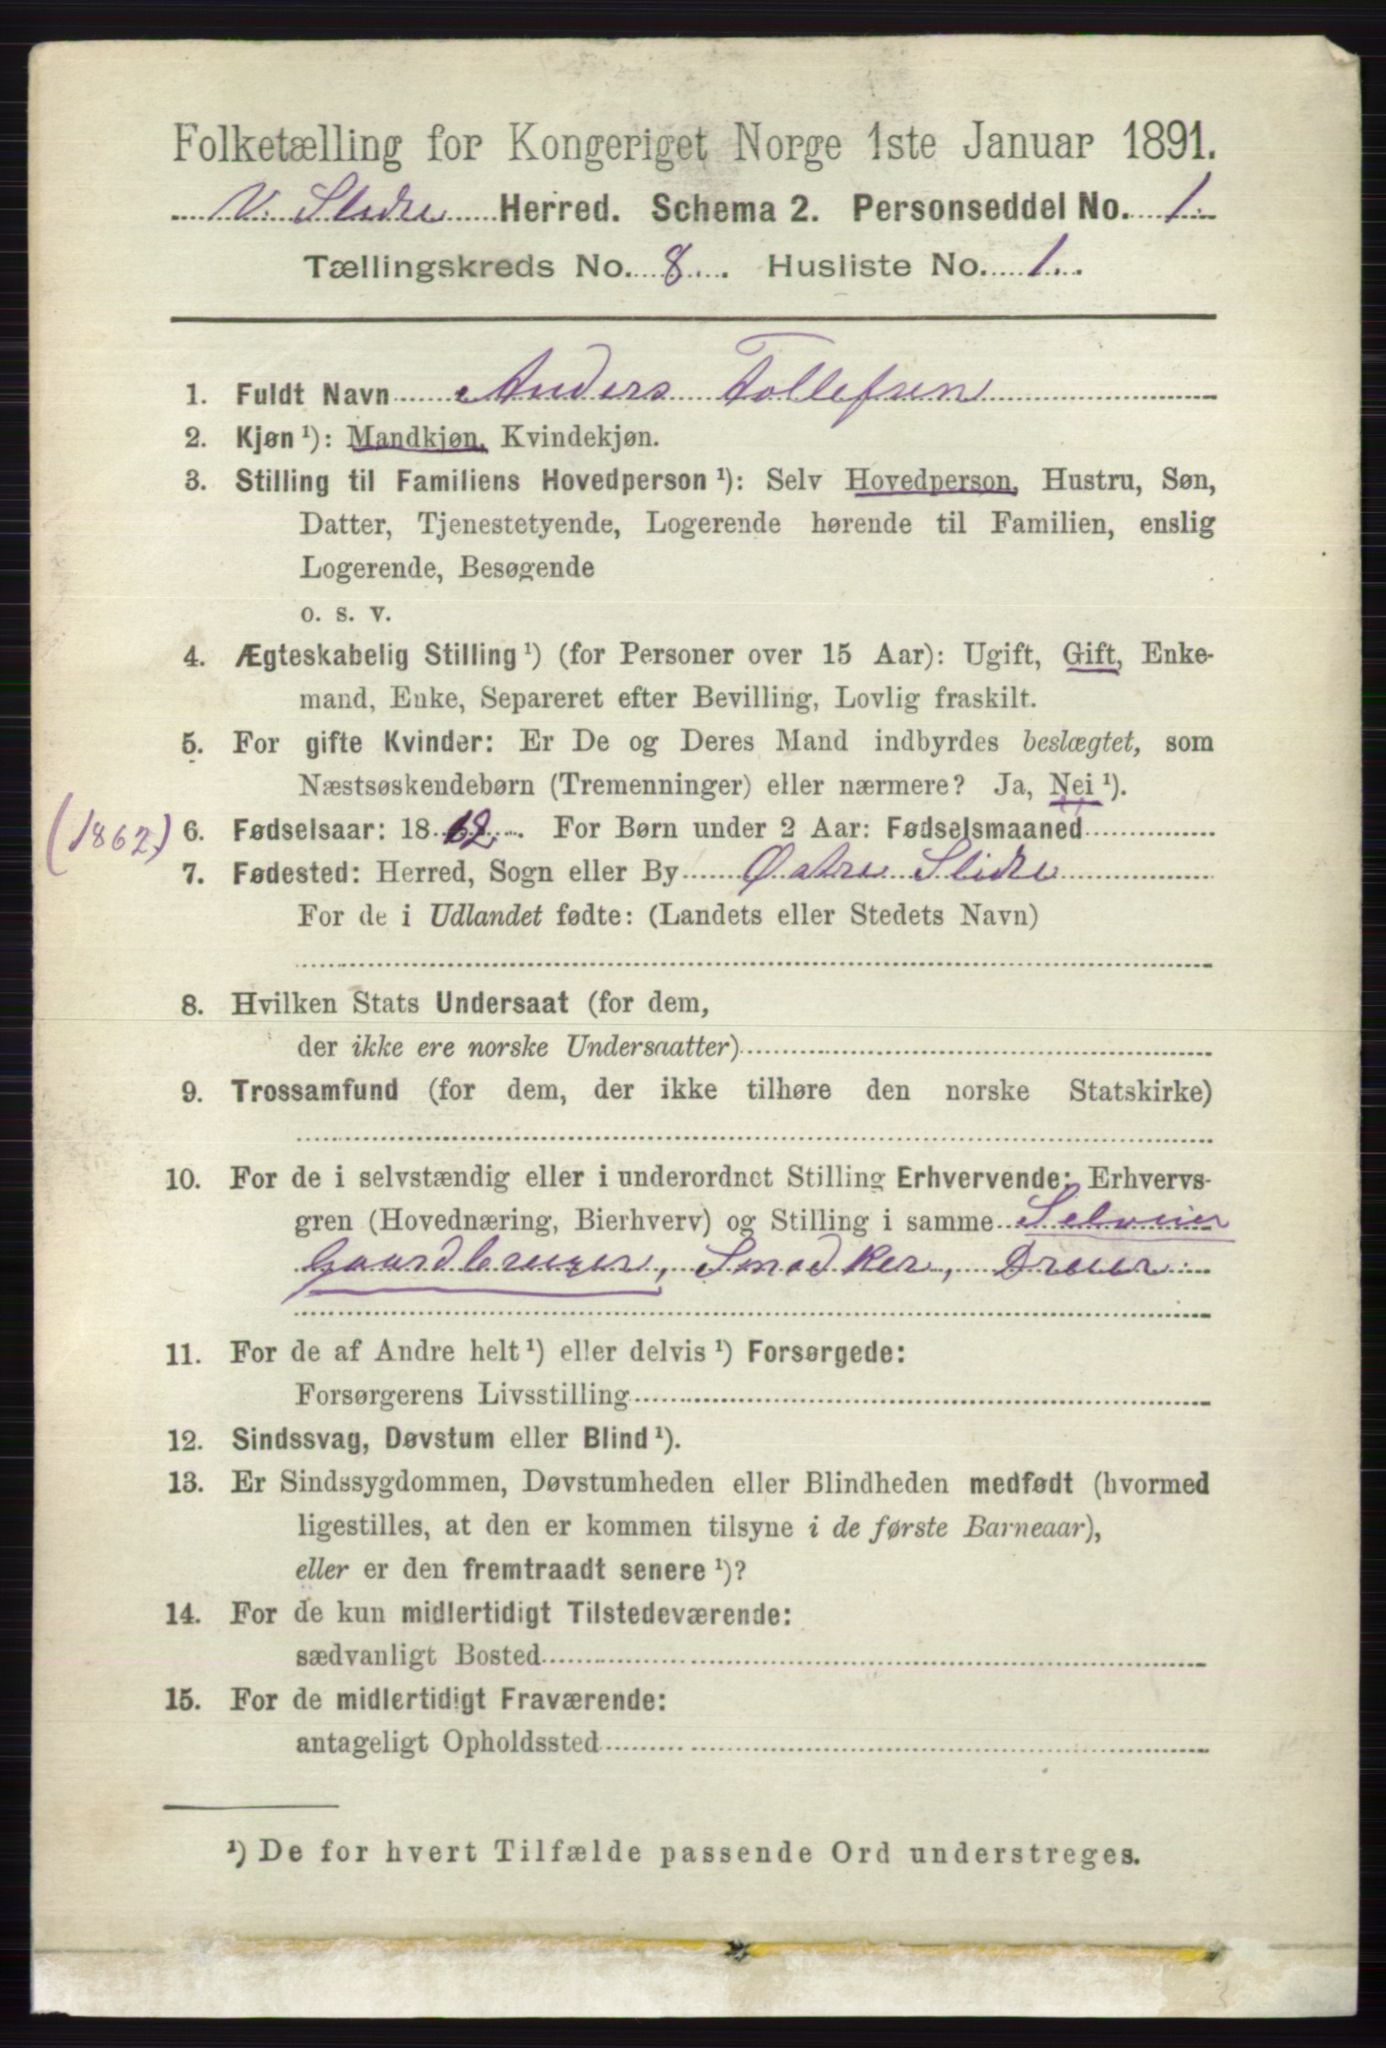 Folketælling for Kongeriget Norge 1ste Januar 1891.
V. Slidre Herred. Schema 2. Personseddel No. 1.
Tællingskreds No. 8. Husliste No. 1.
1. Fuldt Navn Anders Tollefsen
2. Kjøn ¹): Mandkjøn, Kvindekjøn.
3. Stilling til Familiens Hovedperson ¹): Selv Hovedperson, Hustru, Søn,
Datter, Tjenestetyende, Logerende hørende til Familien, enslig
Logerende, Besøgende
o. s. v.
4. Ægteskabelig Stilling ¹) (for Personer over 15 Aar): Ugift, Gift, Enke-
mand, Enke, Separeret efter Bevilling, Lovlig fraskilt.
5. For gifte Kvinder: Er De og Deres Mand indbyrdes beslægtet, som
Næstsøskendebørn (Tremenninger) eller nærmere? Ja, Nei ¹).
(1862) 6. Fødselsaar: 1862. For Børn under 2 Aar: Fødselsmaaned
7. Fødested: Herred, Sogn eller By Østre Slidre
For de i Udlandet fødte: (Landets eller Stedets Navn)
8. Hvilken Stats Undersaat (for dem,
der ikke ere norske Undersaatter)
9. Trossamfund (for dem, der ikke tilhøre den norske Statskirke)
10. For de i selvstændig eller i underordnet Stilling Erhvervende: Erhvervs-
gren (Hovednæring, Bierhverv) og Stilling i samme Selveier
Gaardbruger, Snedker, Dreier
11. For de af Andre helt ¹) eller delvis ¹) Forsørgede:
Forsørgerens Livsstilling
12. Sindssvag, Døvstum eller Blind ¹).
13. Er Sindssygdommen, Døvstumheden eller Blindheden medfødt (hvormed
ligestilles, at den er kommen tilsyne i de første Barneaar),
eller er den fremtraadt senere ¹)?
14. For de kun midlertidigt Tilstedeværende:
sædvanligt Bosted
15. For de midlertidigt Fraværende:
antageligt Opholdssted
¹) De for hvert Tilfælde passende Ord understreges.